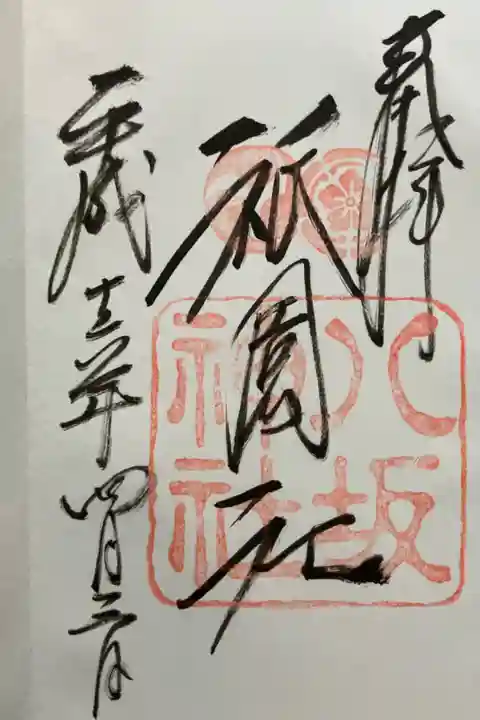 奉拝
祇園社
八坂神社
平成十三年四月三日